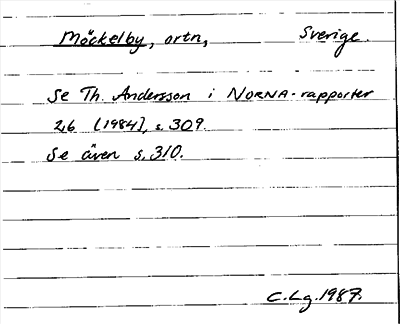 Möckelby, ortn, Sverige.
Se Th. Andersson i NORNA-rapporter
26 (1984), s. 309.
Se även s. 310.
C. Lg. 1987.